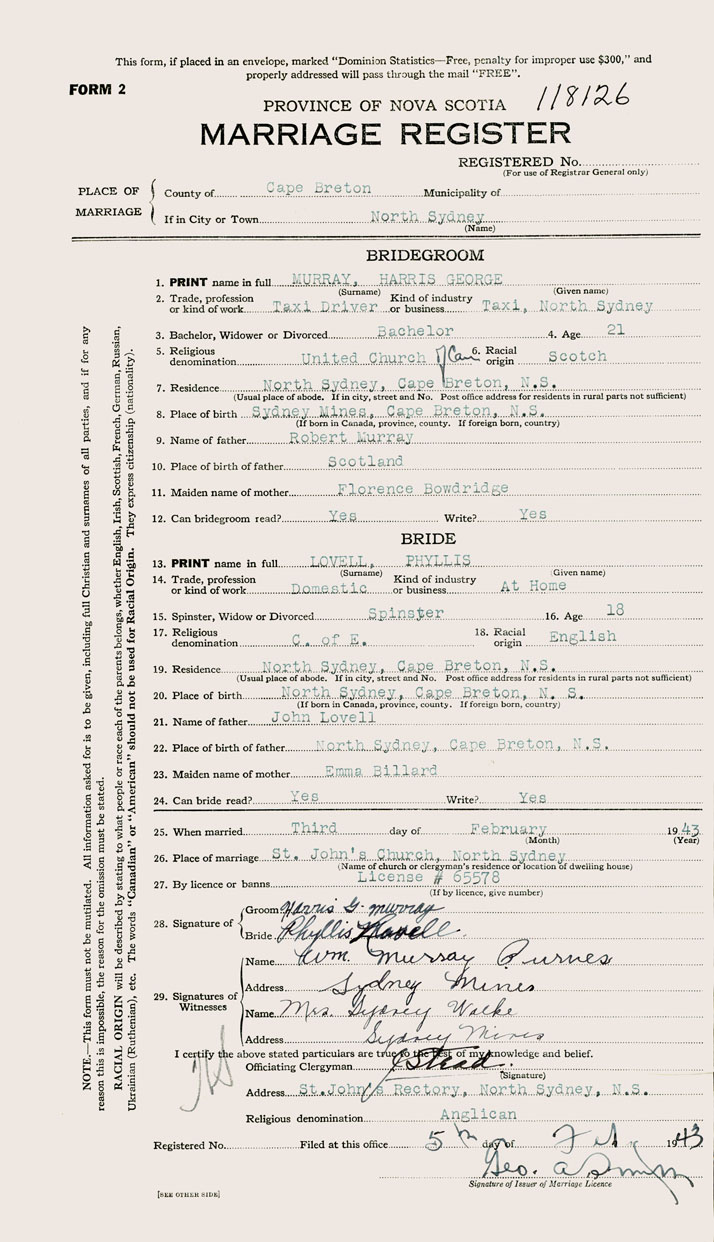 This form, if placed in an envelope, marked "Dominion Statistics—Free, penalty for improper use $300," and
properly addressed will pass through the mail "FREE".
FORM 2
PROVINCE OF NOVA SCOTIA 118126
MARRIAGE REGISTER
REGISTERED No.
(For use of Registrar General only)
PLACE OF MARRIAGE
County of Cape Breton Municipality of
If in City or Town North Sydney
(Name)
BRIDEGROOM
1. PRINT name in full MURRAY, HARRIS GEORGE
(Surname) (Given name)
2. Trade, profession or kind of work Taxi Driver Kind of industry or business Taxi, North Sydney
3. Bachelor, Widower or Divorced Bachelor 4. Age 21
5. Religious denomination United Church of Can 6. Racial origin Scotch
7. Residence North Sydney, Cape Breton, N.S.
(Usual place of abode. If in city, street and No. Post office address for residents in rural parts not sufficient)
8. Place of birth Sydney Mines, Cape Breton, N.S.
(If born in Canada, province, county. If foreign born, country)
9. Name of father Robert Murray
10. Place of birth of father Scotland
11. Maiden name of mother Florence Bowdridge
12. Can bridegroom read? Yes Write? Yes
BRIDE
13. PRINT name in full LOVELL, PHYLLIS
(Surname) (Given name)
14. Trade, profession or kind of work Domestic Kind of industry or business At Home
15. Spinster, Widow or Divorced Spinster 16. Age 18
17. Religious denomination C. of E. 18. Racial origin English
19. Residence North Sydney, Cape Breton, N.S.
(Usual place of abode. If in city, street and No. Post office address for residents in rural parts not sufficient)
20. Place of birth North Sydney, Cape Breton, N. S.
(If born in Canada, province, county. If foreign born, country)
21. Name of father John Lovell
22. Place of birth of father North Sydney, Cape Breton, N.S.
23. Maiden name of mother Emma Billard
24. Can bride read? Yes Write? Yes
25. When married Third day of February 1943
(Month) (Year)
26. Place of marriage St. John's Church, North Sydney
(Name of church or clergyman's residence or location of dwelling house)
27. By licence or banns License # 65578
(If by licence, give number)
28. Signature of
Groom Harris G. Murray
Bride Phyllis Lovell
29. Signatures of Witnesses
Name Wm. Murray Purves
Address Sydney Mines
Name Mrs. Sydney Walke
Address Sydney Mines
I certify the above stated particulars are true to the best of my knowledge and belief.
Officiating Clergyman
(Signature)
Address St. John's Rectory, North Sydney, N.S.
Religious denomination Anglican
Registered No. Filed at this office 5th day of Feb. 1943
Geo. A.
Signature of Issuer of Marriage Licence
[SEE OTHER SIDE]
NOTE.—This form must not be mutilated. All information asked for is to be given, including full Christian and surnames of all parties, and if for any
reason this is impossible, the reason for the omission must be stated.
RACIAL ORIGIN will be described by stating to what people or race each of the parents belongs, whether English, Irish, Scottish, French, German, Russian,
Ukrainian (Ruthenian), etc. The words "Canadian" or "American" should not be used for Racial Origin. They express citizenship (nationality).